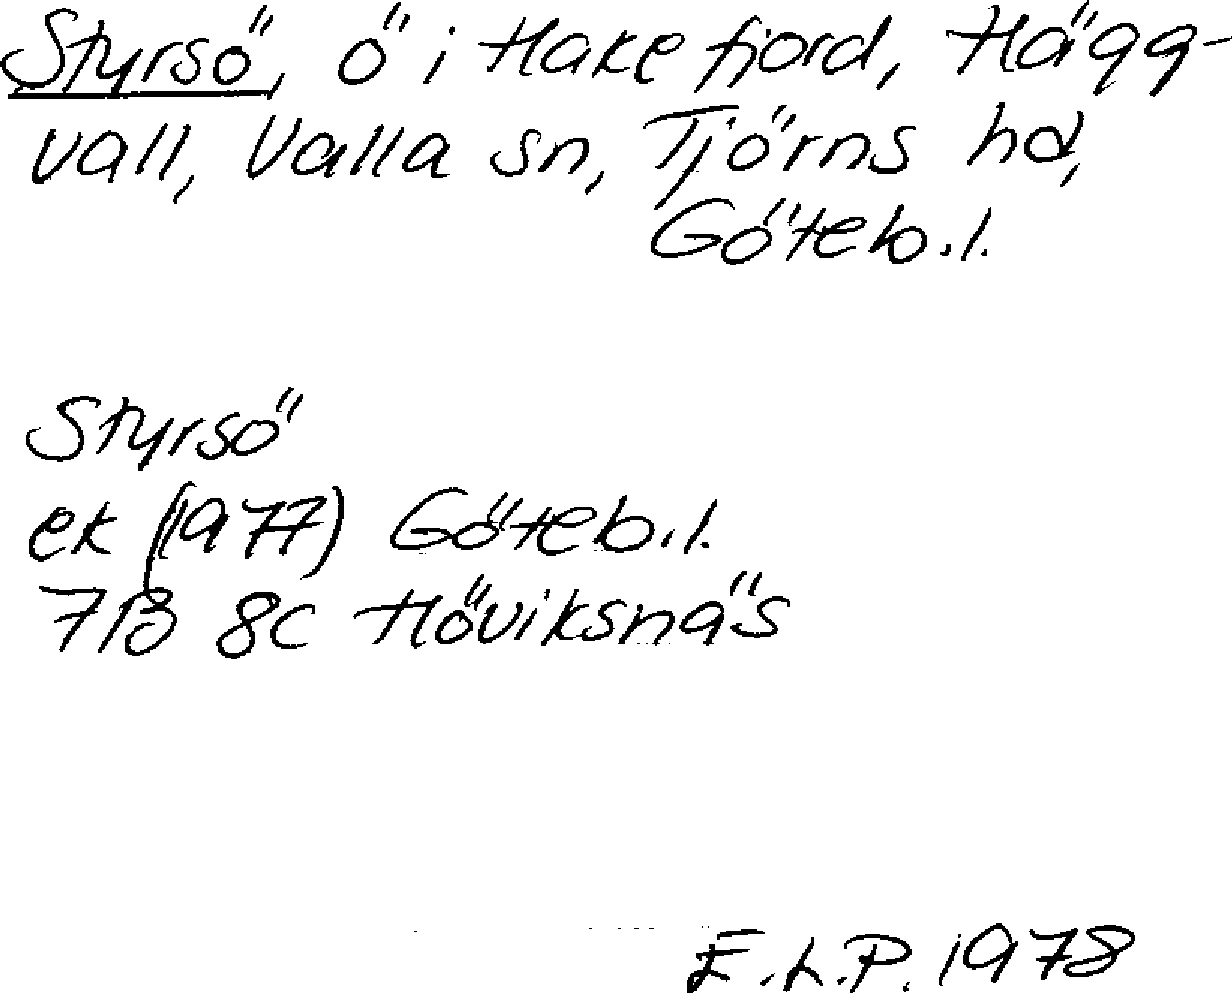 Styrsö, ö i Hakefjord, Hägg-
vall, Valla sn, Tjörns hd,
Göteb.l.
Styrsö
ek (1977) Göteb.l.
7B 8c Höviksnäs
E.L.P. 1978